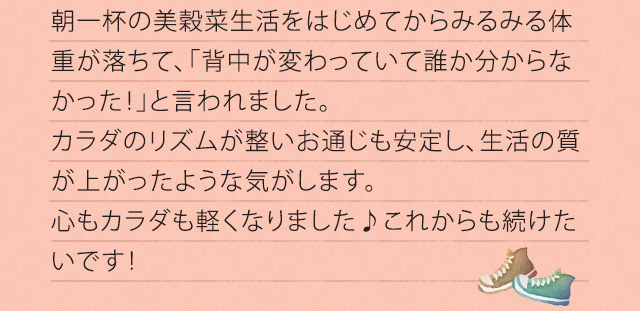 朝一杯の美穀菜生活をはじめてからみるみる体
重が落ちて、「背中が変わっていて誰か分からな
かった！」と言われました。
カラダのリズムが整いお通じも安定し、生活の質
が上がったような気がします。
心もカラダも軽くなりました♪これからも続けた
いです！